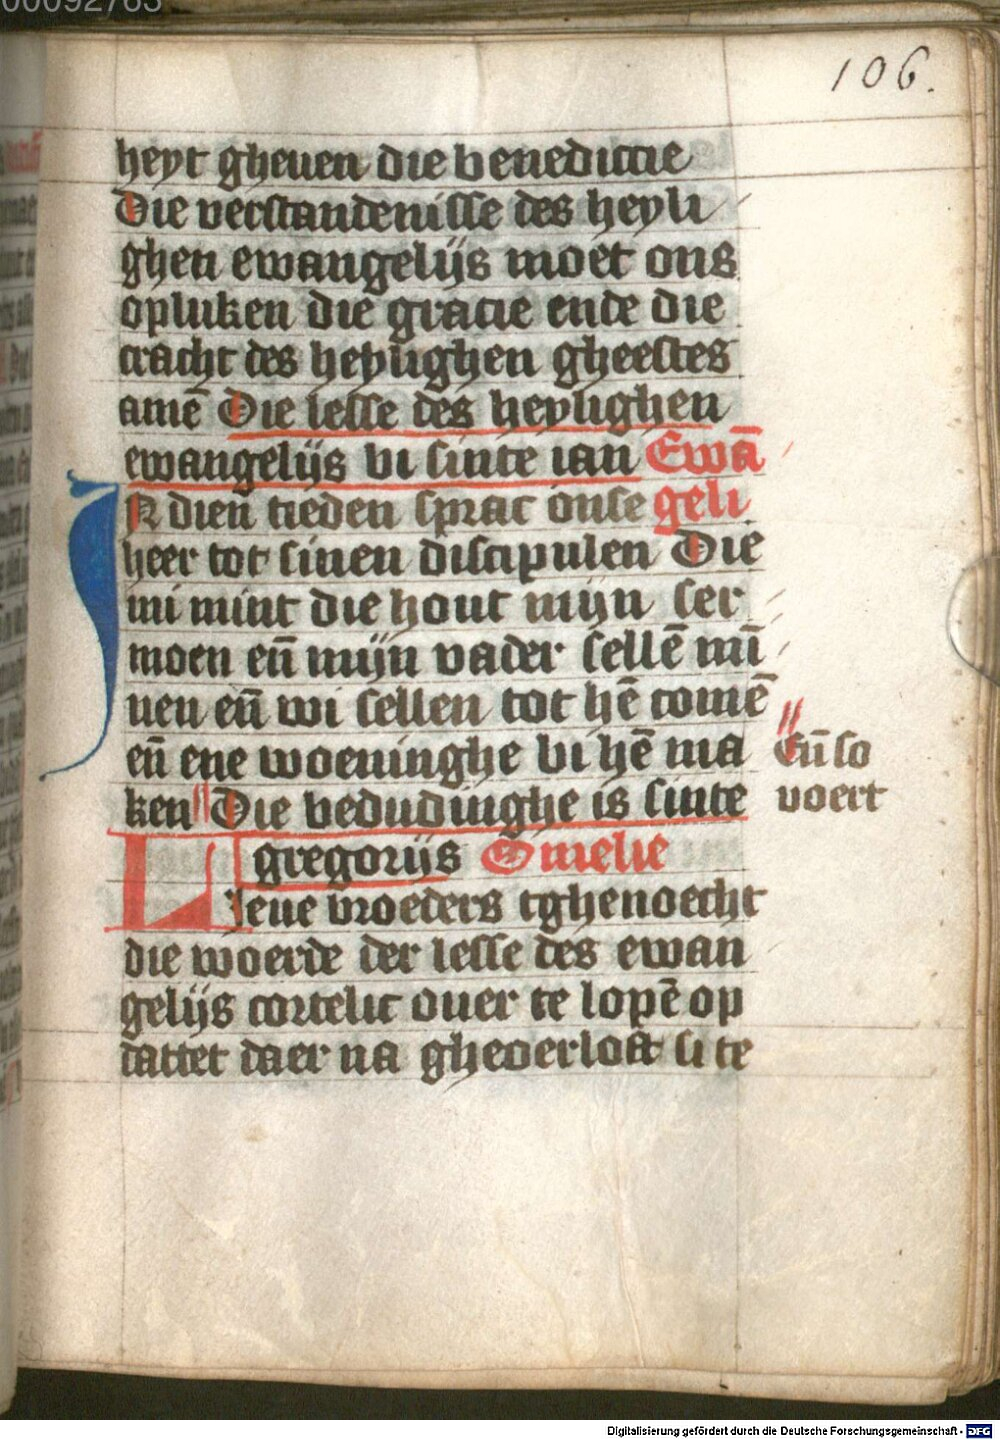 00092763
106.
heyt gheuen die benedictie
Die verstandenisse des heyli
ghen ewangelijs moet ons
opluken die gracie ende die
cracht des heylighen gheestes
amē Die lesse des heylighen
ewangelijs bi sinte ian Ewā
IN dien tieden sprac onse geli
heer tot sinen discipulen Die
mi mint die hout mijn ser
moen eñ mijn vader sellē mī
nen eñ wi sellen tot hē comē
eñ ene woeninghe bi hē ma
ken Die bedudinghe is sinte
gregorijs Omelie
Lieue broeders tghenoecht
die woerde der lesse des ewan
gelijs cortelic ouer te lopē op
dattet daer na gheoerloft si te
Eñ so
voert
Digitalisierung gefördert durch die Deutsche Forschungsgemeinschaft - DFG